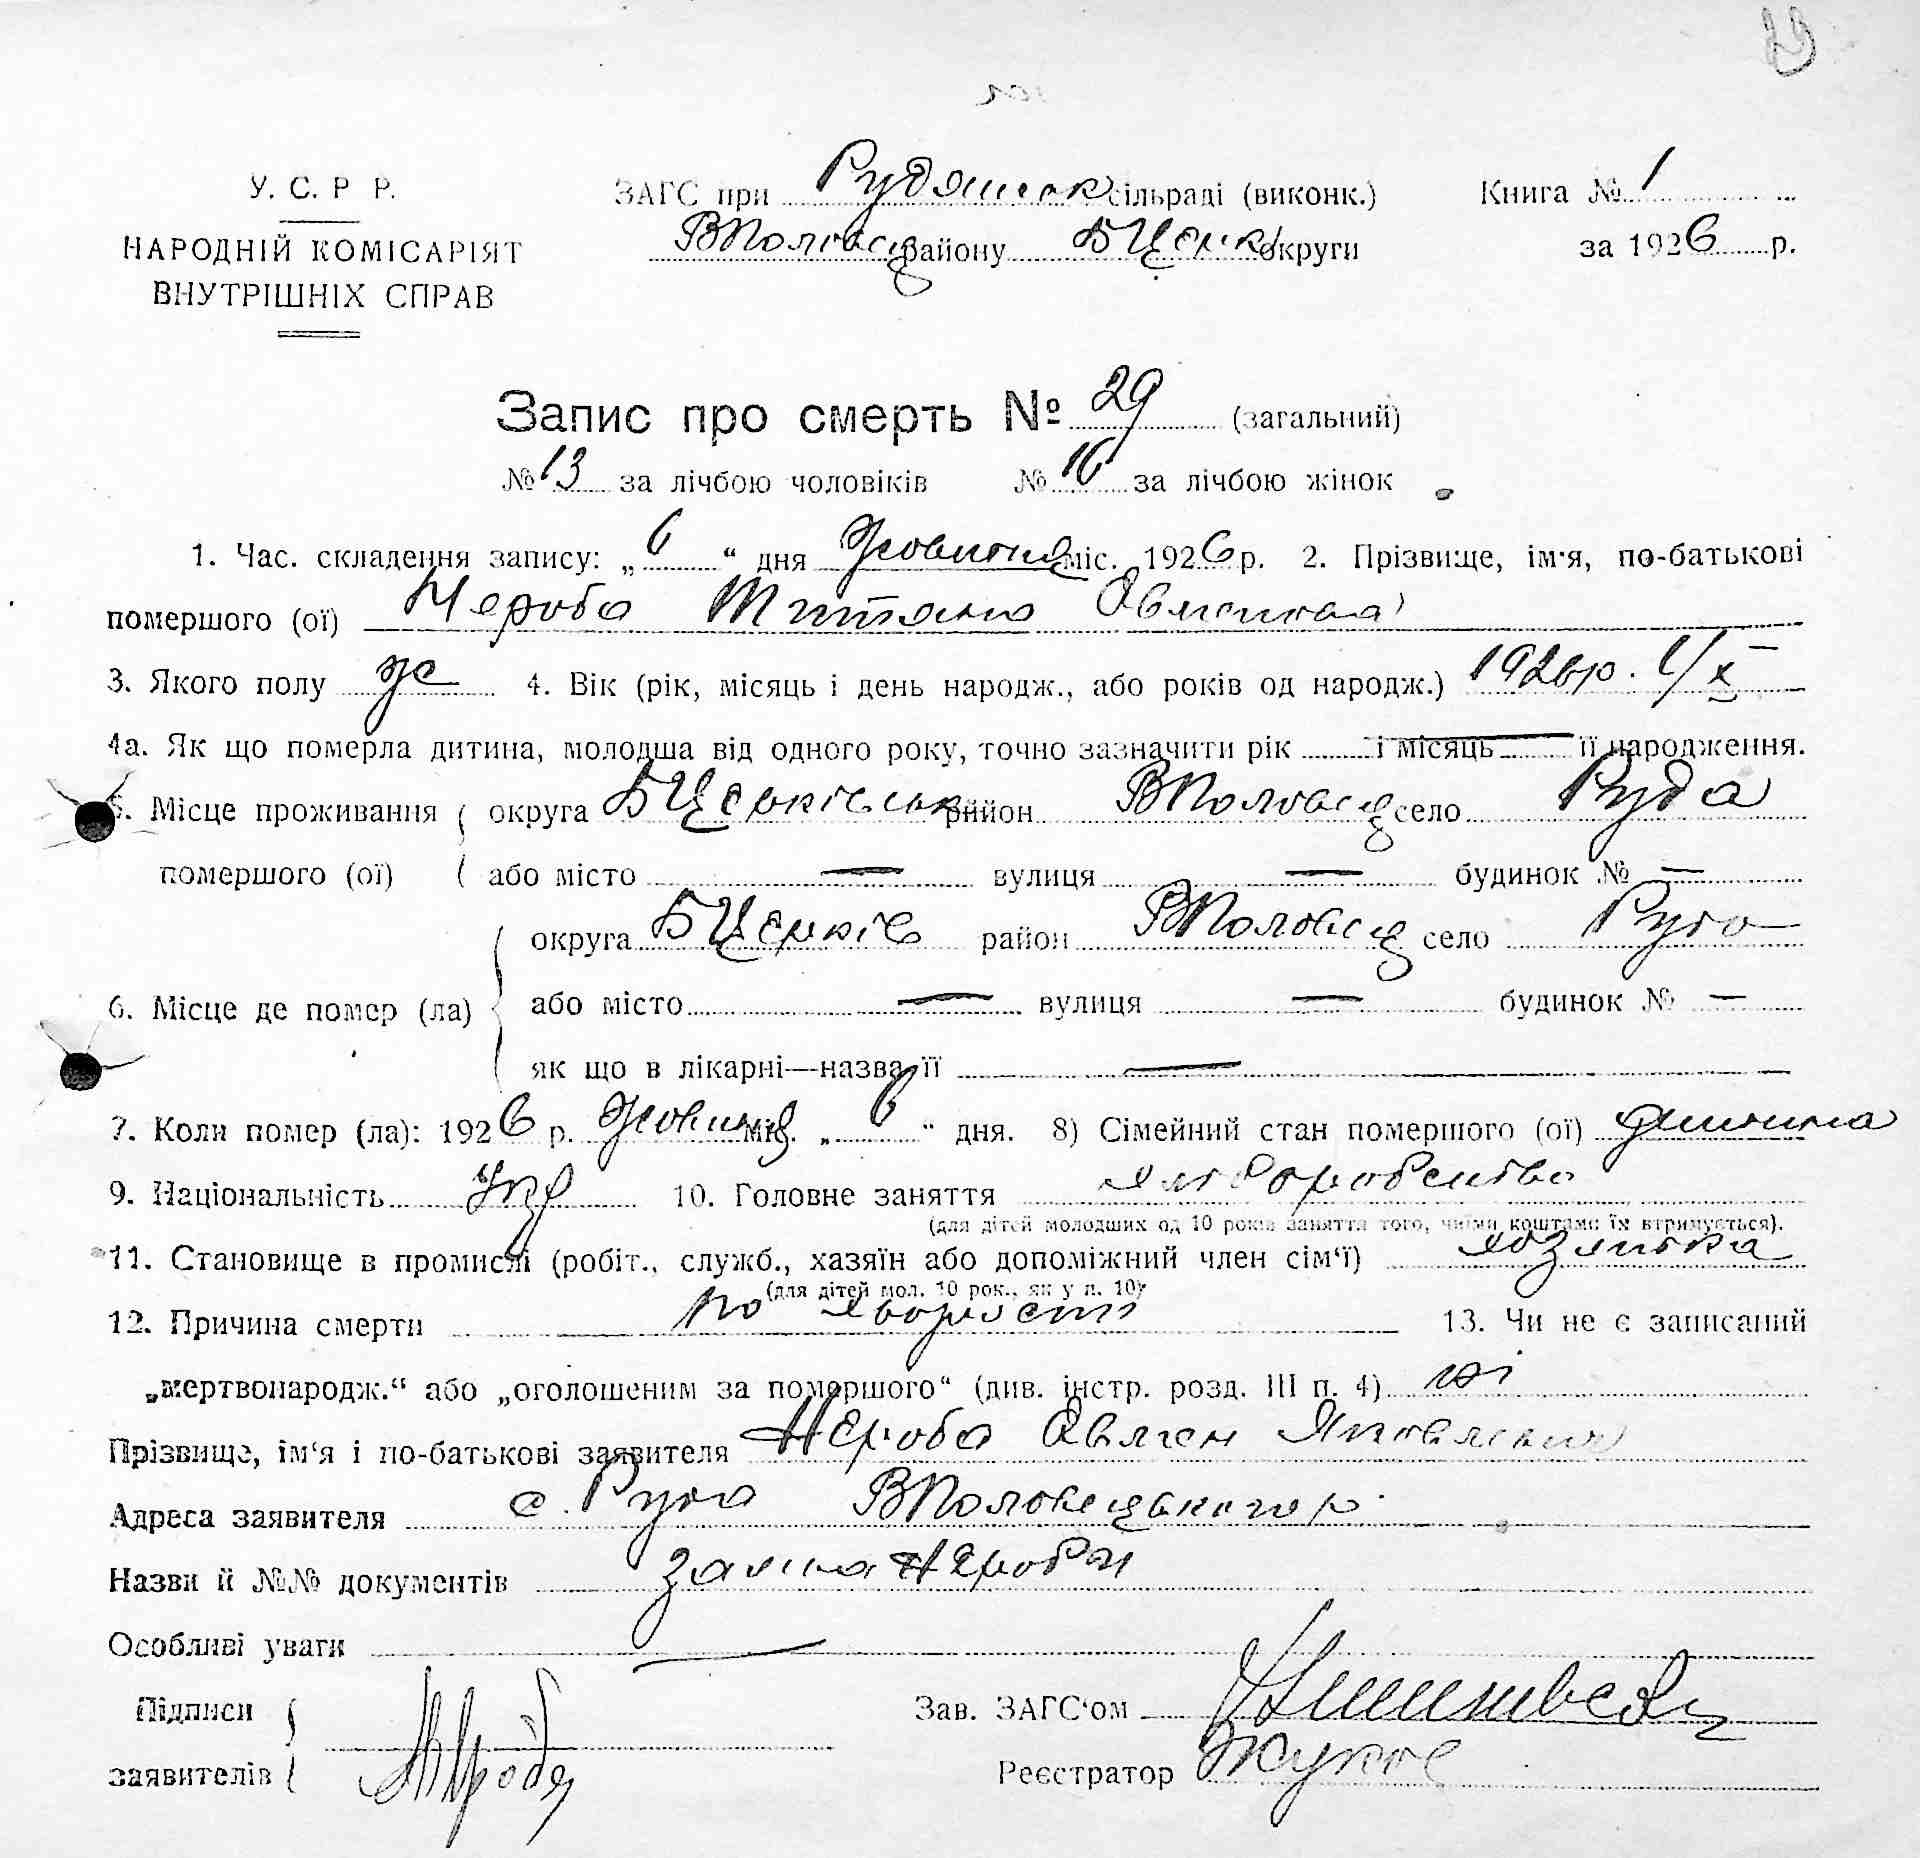 У. С. Р Р.
НАРОДНІЙ КОМІСАРІЯТ
ВНУТРІШНІХ СПРАВ
ЗАГС при Рудянськ сільраді (виконк.) Книга № 1
ВПоловец району БЦерк округи за 1926 р.
Запис про смерть № 29 (загальний)
№ 13 за лічбою чоловіків № 16 за лічбою жінок
1. Час. складення запису: „ 6 “ дня Жовтня міс. 1926 р. 2. Прізвище, ім'я, по-батькові
помершого (ої) Нероба Титяна
3. Якого полу ж 4. Вік (рік, місяць і день народж., або років од народж.) 1926р. 1/X
4а. Як що померла дитина, молодша від одного року, точно зазначити рік — і місяць — її народження.
5. Місце проживання округа БЦерківськ район ВПоловец село Руда
помершого (ої) або місто — вулиця — будинок № —
округа БЦерків район ВПоловец село Руда
6. Місце де помер (ла) або місто — вулиця — будинок № —
як що в лікарні—назва її —
7. Коли помер (ла): 1926 р. Жовтня міс. „ 6 “ дня. 8) Сімейний стан помершого (ої) дитина
9. Національність Укр 10. Головне заняття хліборобство
(для дітей молодших од 10 років заняття того, чиїми коштами їх втримується).
11. Становище в промислі (робіт., служб., хазяїн або допоміжний член сім'ї)
(для дітей мол. 10 рок., як у п. 10)
12. Причина смерти по хворости 13. Чи не є записаний
„мертвонародж.“ або „оголошеним за помершого“ (див. інстр. розд. III п. 4) ні
Прізвище, ім'я і по-батькові заявителя Нероба Яковлевич
Адреса заявителя с. Руда ВПоловецького р.
Назви й №№ документів заява Нероби
Особливі уваги —
Підписи
заявителів
Зав. ЗАГС'ом
Реєстратор